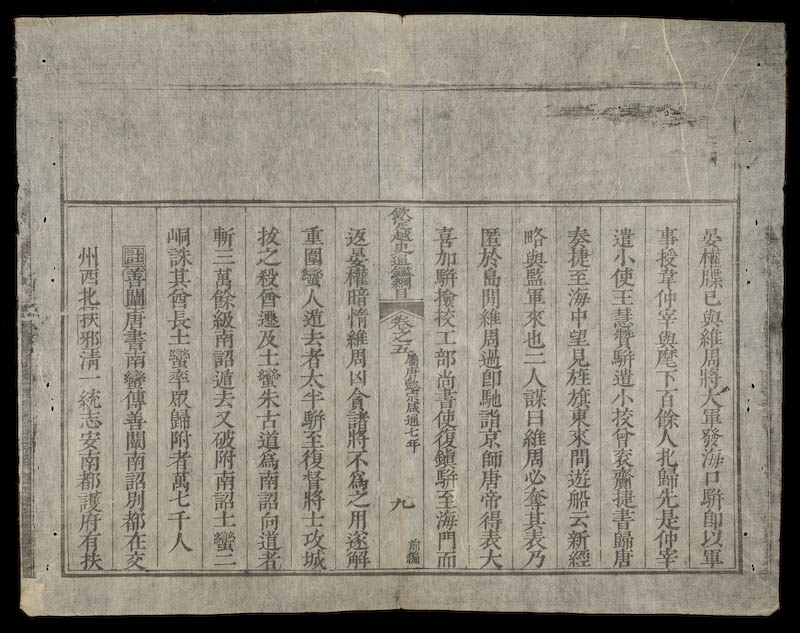 晏權牒已與維周將大軍發海門駢即以軍
事授韋仲宰與麾下百餘人北歸先是仲宰
遣小使王慧贊駢遣小挍曾袞齎捷書歸唐
奏捷至海中望見旌旗東來問遊船云新經
略與監軍來也二人謀曰維周必奪其表乃
匿於島間維周過卽馳詣京師唐帝得表大
喜加駢撿挍工部尚書使復鎭駢至海門而
欽定越史通鑑綱目 卷之五 屬唐懿宗咸通七年 九 前編
返晏權暗惰維周凶貪諸將不爲之用遂解
重圍蠻人遁去者太半駢至復督將士攻城
拔之殺酋遷及土蠻朱古道爲南詔向道者
斬三萬餘級南詔遁去又破附南詔土蠻二
峒誅其酋長土蠻率眾歸附者萬七千人
註善闡唐書南蠻傳善闡南詔别都在交
州西北扶邪淸一統志安南都護府有扶